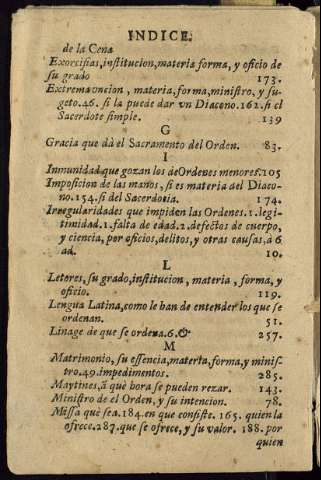 INDICE.
de la Cena
Exorcistas, institucion, materia forma, y oficio de
su grado 173.
Extremauncion, materia, forma, ministro, y su-
geto. 46. si la puede dar vn Diacono. 161. si el
Sacerdote simple. 139
G
Gracia que dà el Sacramento del Orden. 83.
I
Inmunidad que gozan los de Ordenes menores. 105
Imposicion de las manos, si es materia del Diaco-
no. 154. si del Sacerdocia. 174.
Irregularidades que impiden las Ordenes. 1. legi-
timidad. 1. falta de edad. 2. defectos de cuerpo,
y ciencia, por oficios, delitos, y otras causas, à 6
ad. 10.
L
Letores, su grado, institucion, materia, forma, y
oficio. 119.
Lengua Latina, como le han de entender los que se
ordenan. 51.
Linage de que se ordena. 6. & 257.
M
Matrimonio, su essencia, materia, forma, y minis-
tro. 49. impedimentos. 285.
Maytines, à què bora se pueden rezar. 143.
Ministro de el Orden, y su intencion. 78.
Missa què sea. 184. en que consiste. 165. quien la
ofrece. 287. que se ofrece, y su valor. 188. por
quien